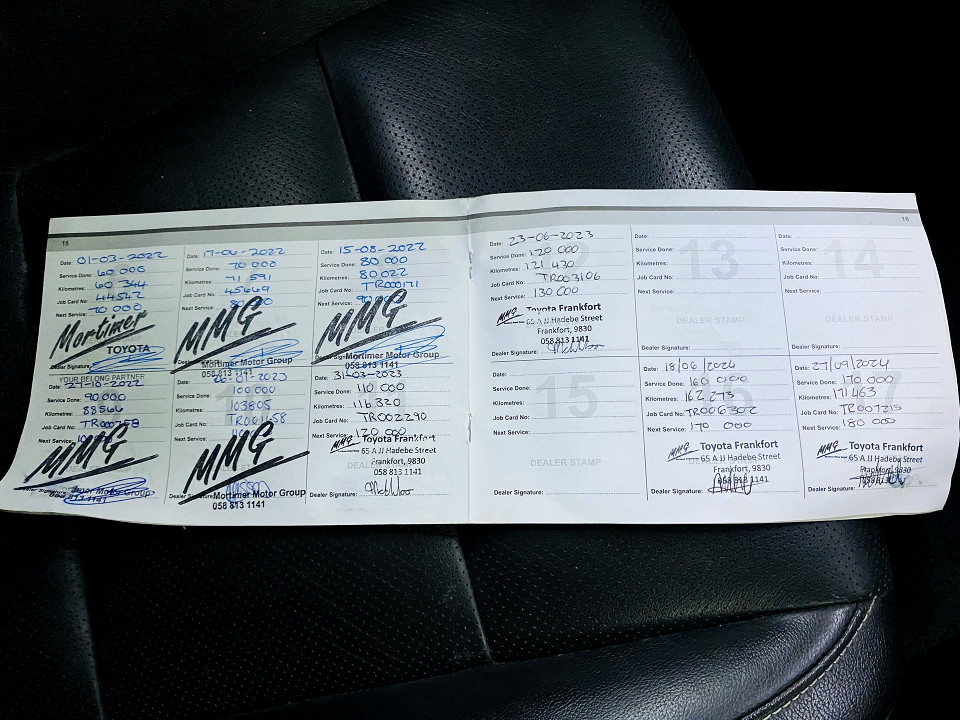 15
Date: 01-03-2022
Service Done: 60 000
Kilometres: 60 344
Job Card No: 44542
Next Service: 70 000
Mortimer
TOYOTA
Dealer Signature:
YOUR BELONG PARTNER
Date: 17-06-2022
Service Done: 70 000
Kilometres: 71 591
Job Card No: 45669
Next Service: 80 000
MMG
Mortimer Motor Group
058 813 1141
Date: 15-08-2022
Service Done: 80 000
Kilometres: 80 022
Job Card No: TR000171
Next Service: 90 000
MMG
Mortimer Motor Group
058 813 1141
Date: 27-10-2022
Service Done: 90 000
Kilometres: 88566
Job Card No:
Next Service:
MMG
Mortimer Motor Group
Date: 26-01-2023
Service Done: 100 000
Kilometres: 103805
Job Card No:
Next Service:
MMG
Dealer
Mortimer Motor Group
058 813 1141
Date: 31-03-2023
Service Done: 110 000
Kilometres: 116 320
Job Card No: TR002290
Next Service: 120 000
MMG Toyota Frankfort
65 A JJ Hadebe Street
Frankfort, 9830
058 813 1141
Dealer Signature:
16
Date: 23-06-2023
Service Done: 120 000
Kilometres: 121 430
Job Card No: TR003106
Next Service: 130 000
MMG Toyota Frankfort
65 A JJ Hadebe Street
Frankfort, 9830
058 813 1141
Dealer Signature:
13
Date:
Service Done:
Kilometres:
Job Card No:
Next Service:
DEALER STAMP
Dealer Signature:
14
Date:
Service Done:
Kilometres:
Job Card No:
Next Service:
DEALER STAMP
Dealer Signature:
15
Date:
Service Done:
Kilometres:
Job Card No:
Next Service:
DEALER STAMP
Dealer Signature:
Date: 18/06/2024
Service Done: 160 000
Kilometres: 162 273
Job Card No: TR006302
Next Service: 170 000
MMG Toyota Frankfort
65 A JJ Hadebe Street
Frankfort, 9830
058 813 1141
Dealer Signature:
Date: 27/09/2024
Service Done: 170 000
Kilometres: 171 463
Job Card No: TR007215
Next Service: 180 000
MMG Toyota Frankfort
65 A JJ Hadebe Street
Frankfort, 9830
Dealer Signature: